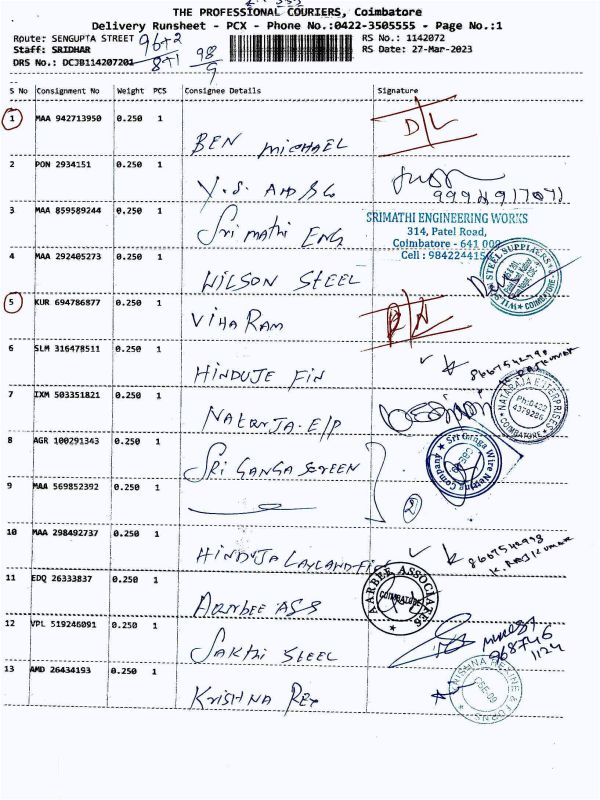 THE PROFESSIONAL COURIERS, Coimbatore
Delivery Runsheet - PCX - Phone No.:0422-3505555 - Page No.:1
Route: SENGUPTA STREET 96+2 RS No.: 1142072
Staff: SRIDHAR 8+1 98 RS Date: 27-Mar-2023
DRS No.: DCJB114207201 9
S No Consignment No Weight PCS Consignee Details Signature
1 MAA 942713950 0.250 1 BEN MICHAEL D/L
2 PON 2934151 0.250 1 Y.S. AND
3 MAA 859589244 0.250 1 Sri mathi ENG
SRIMATHI ENGINEERING WORKS
314, Patel Road,
Coimbatore - 641 009
Cell : 9842244150
4 MAA 292405273 0.250 1 WILSON STEEL
STEEL SUPPLIERS COIMBATORE
5 KUR 694786877 0.250 1 VIHA RAM
6 SLM 316478511 0.250 1 HINDUJE FIN
K. RAJKUMAR
7 IXM 503351821 0.250 1 NATRAJA E/P
NATARAJA ENTERPRISES
Ph:0422
4379286
COIMBATORE
8 AGR 100291343 0.250 1 SRI GANGA SCREEN
Sri Ganga Wire Netting Company
9 MAA 569852392 0.250 1 2
10 MAA 298492737 0.250 1 HINDUJA LAYLAND FIN
8667542998
K. RAJKUMAR
11 EDQ 26333837 0.250 1 AARBEE ASS
AARBEE ASSOCIATES
COIMBATORE
12 VPL 519246091 0.250 1 SAKTHI STEEL
968746
1124
13 AMD 26434193 0.250 1 KRISHNA REX
KRISHNA REXINE & FOAMS